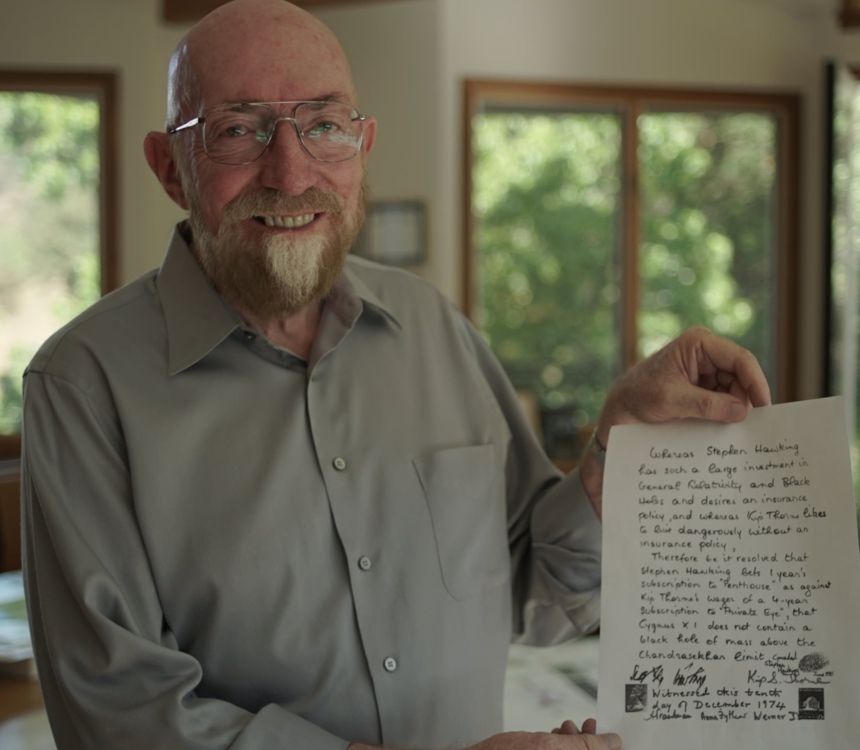 Whereas Stephen Hawking
has such a large investment in
General Relativity and Black
Holes and desires an insurance
policy, and whereas Kip Thorne likes
to live dangerously without an
insurance policy,
Therefore be it resolved that
Stephen Hawking bets 1 year's
subscription to "Penthouse" as against
Kip Thorne's wager of a 4-year
subscription to "Private Eye", that
Cygnus X 1 does not contain a
black hole of mass above the
Chandrasekhar limit
Kip S. Thorne
Witnessed this tenth
day of December 1974
Anna Żytkow Werner